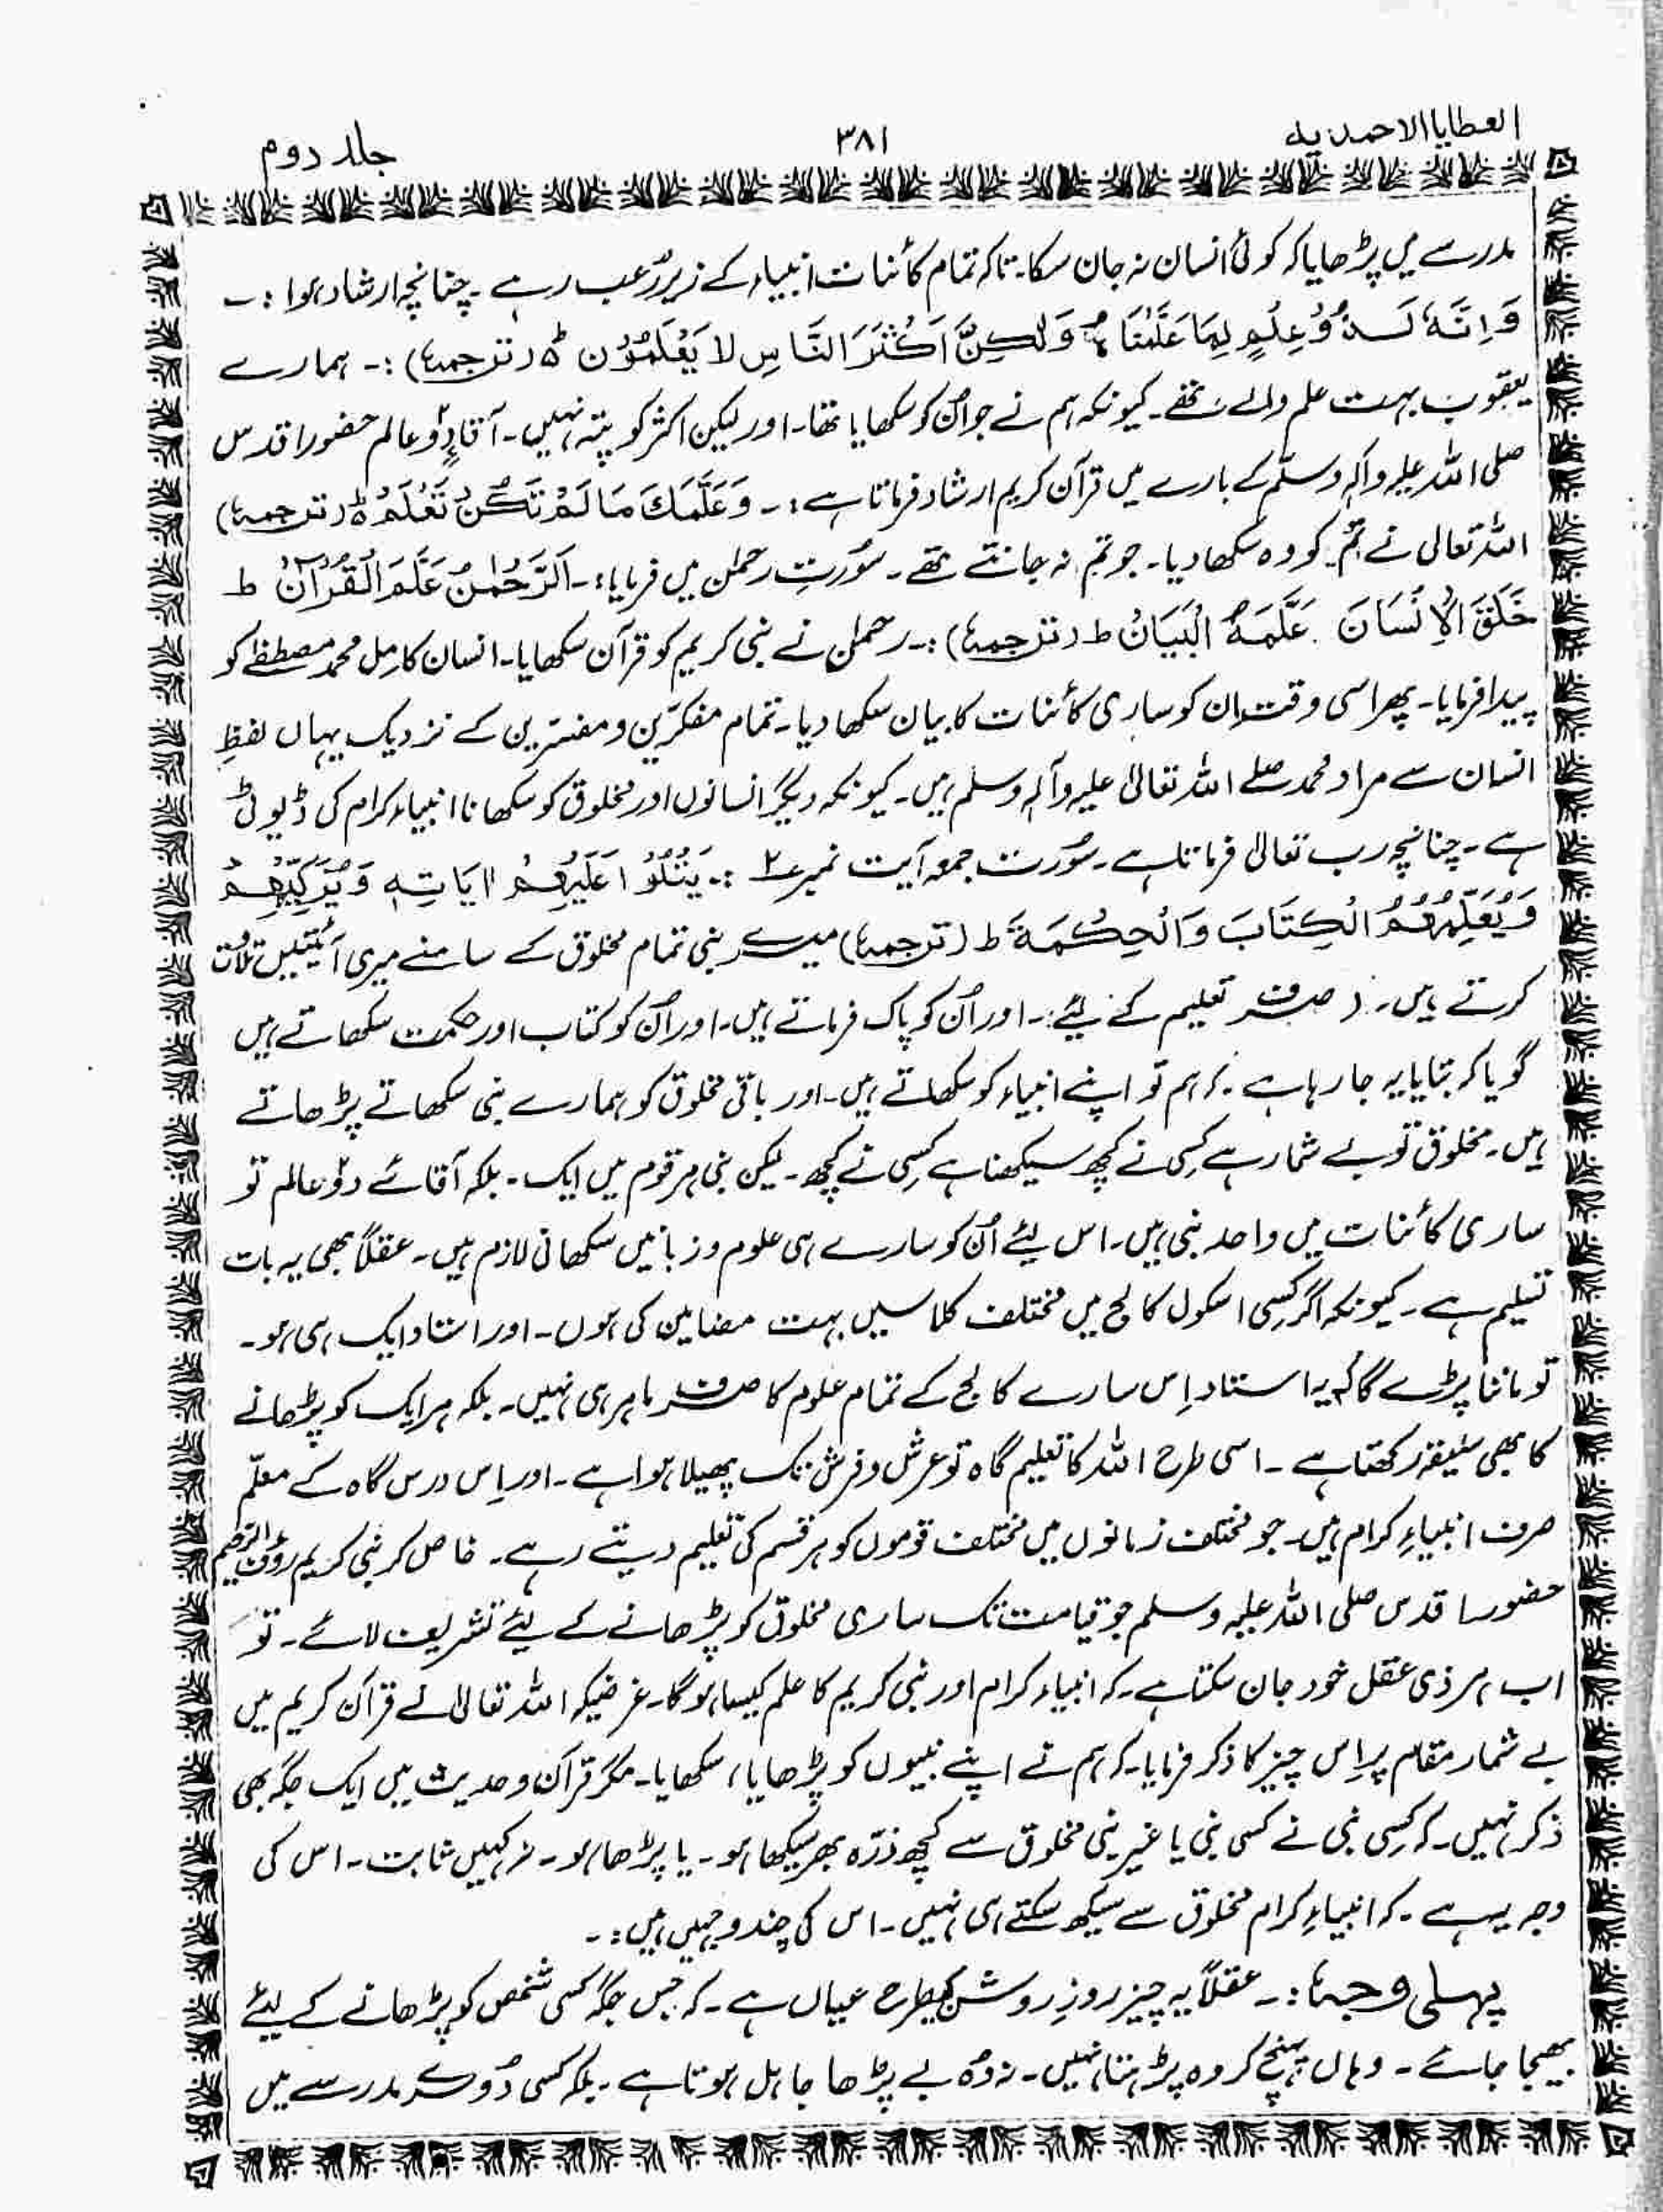 العطایا الاحمدیہ
۳۸۱
جلد دوم
مدرسے میں پڑھایا کہ کوئی انسان نہ جان سکا۔ تاکہ تمام کائنات انبیاء کے زیر رُعب رہے۔ چنانچہ ارشاد ہوا :۔
وَاِنَّہٗ لَذُوْ عِلْمٍ لِمَا عَلَّمْنَاہُ وَلٰکِنَّ اَکْثَرَ النَّاسِ لَا یَعْلَمُوْنَ ہ (ترجمہ) :۔ ہمارے
یعقوب بہت علم والے تھے۔ کیونکہ ہم نے جو اُن کو سکھایا تھا۔ اور لیکن اکثر کو پتہ نہیں۔ آقاءِ دو عالم حضور اقدس
صلی اللہ علیہ وآلہٖ وسلّم کے بارے میں قرآن کریم ارشاد فرماتا ہے :۔ وَعَلَّمَکَ مَا لَمْ تَکُنْ تَعْلَمُ ہ (ترجمہ)
اللہ تعالی نے تم کو وہ سکھا دیا۔ جو تم نہ جانتے تھے۔ سُورتِ رحمٰن میں فرمایا :۔ اَلرَّحْمٰنُ عَلَّمَ الْقُرْآنَ ط
خَلَقَ الْاِنْسَانَ عَلَّمَہُ الْبَیَانَ ط (ترجمہ) :۔ رحمٰن نے نبی کریم کو قرآن سکھایا۔ انسان کامِل محمد مصطفےٰ کو
پیدا فرمایا۔ پھر اسی وقت ان کو ساری کائنات کا بیان سکھا دیا۔ تمام مفکرین و مفسّرین کے نزدیک یہاں لفظِ
انسان سے مراد محمد صلے اللہ تعالیٰ علیہ وآلہٖ وسلم ہیں۔ کیونکہ دیگر انسانوں اور مخلوق کو سکھانا انبیاء کرام کی ڈیوٹی
ہے۔ چنانچہ رب تعالیٰ فرماتا ہے۔ سُورت جمعہ آیت نمبر ۲ :۔ یَتْلُوْا عَلَیْہِمْ اٰیَاتِہٖ وَیُزَکِّیْہِمْ
وَیُعَلِّمُہُمُ الْکِتَابَ وَالْحِکْمَۃَ ط (ترجمہ) میرے نبی تمام مخلوق کے سامنے میری آئیتیں تلاوت
کرتے ہیں۔ (صرف تعلیم کے لیئے :۔ اور اُن کو پاک فرماتے ہیں۔ اور اُن کو کتاب اور حکمت سکھاتے ہیں
گویا کہ بتایا یہ جا رہا ہے۔ کہ ہم تو اپنے انبیاء کو سکھاتے ہیں۔ اور باقی مخلوق کو ہمارے نبی سکھاتے پڑھاتے
ہیں۔ مخلوق تو بے شمار ہے کِسی نے کچھ سیکھنا ہے کِسی نے کچھ۔ لیکن نبی ہر قوم میں ایک۔ بلکہ آقائے دو عالم تو
ساری کائنات میں واحد نبی ہیں۔ اس لیئے اُن کو سارے ہی علوم و زبانیں سکھانی لازم ہیں۔ عقلاً بھی یہ بات
تسلیم ہے۔ کیونکہ اگر کسِی اسکول کالج میں مختلف کلاسیں بہت مضامین کی ہوں۔ اور استاد ایک ہی ہو۔
تو ماننا پڑے گا کہ یہ استاد اِس سارے کالج کے تمام علوم کا صرف ماہر ہی نہیں۔ بلکہ ہر ایک کو پڑھانے
کا بھی سلیقہ رکھتا ہے۔ اسی طرح اللہ کا تعلیم گاہ تو عرش و فرش تک پھیلا ہوا ہے۔ اور اِس درس گاہ کے معلّم
صرف انبیاءِ کرام ہیں۔ جو مختلف زمانوں میں مختلف قوموں کو ہر قسم کی تعلیم دیتے رہے۔ خاص کر نبی کریم رؤف الرّحیم
حضور اقدس صلی اللہ علیہ وسلم جو قیامت تک ساری مخلوق کو پڑھانے کے لیئے تشریف لائے۔ تو
اب ہر ذی عقل خود جان سکتا ہے۔ کہ انبیاء کرام اور نبی کریم کا علم کیسا ہو گا۔ غرضیکہ اللہ تعالیٰ نے قرآن کریم میں
بے شمار مقام پر اِس چیز کا ذکر فرمایا۔ کہ ہم نے اپنے نبیوں کو پڑھایا، سکھایا۔ مگر قرآن و حدیث میں ایک جگہ بھی
ذکر نہیں۔ کہ کِسی نبی نے کسی نبی یا غیر نبی مخلوق سے کچھ ذرّہ بھر سیکھا ہو۔ یا پڑھا ہو۔ نہ کہیں ثابت۔ اس کی
وجہ یہ ہے۔ کہ انبیاءِ کرام مخلوق سے سیکھ سکتے ہی نہیں۔ اس کی چند وجہیں ہیں :۔
پہلی وجہ :۔ عقلاً یہ چیز روزِ روشن کیطرح عیاں ہے۔ کہ جس جگہ کسی شخص کو پڑھانے کے لیئے
بھیجا جائے۔ وہاں پہنچ کر وہ پڑھتا نہیں۔ نہ وُہ بے پڑھا جاہل ہوتا ہے۔ بلکہ کسی دُوسرے مدرسے میں